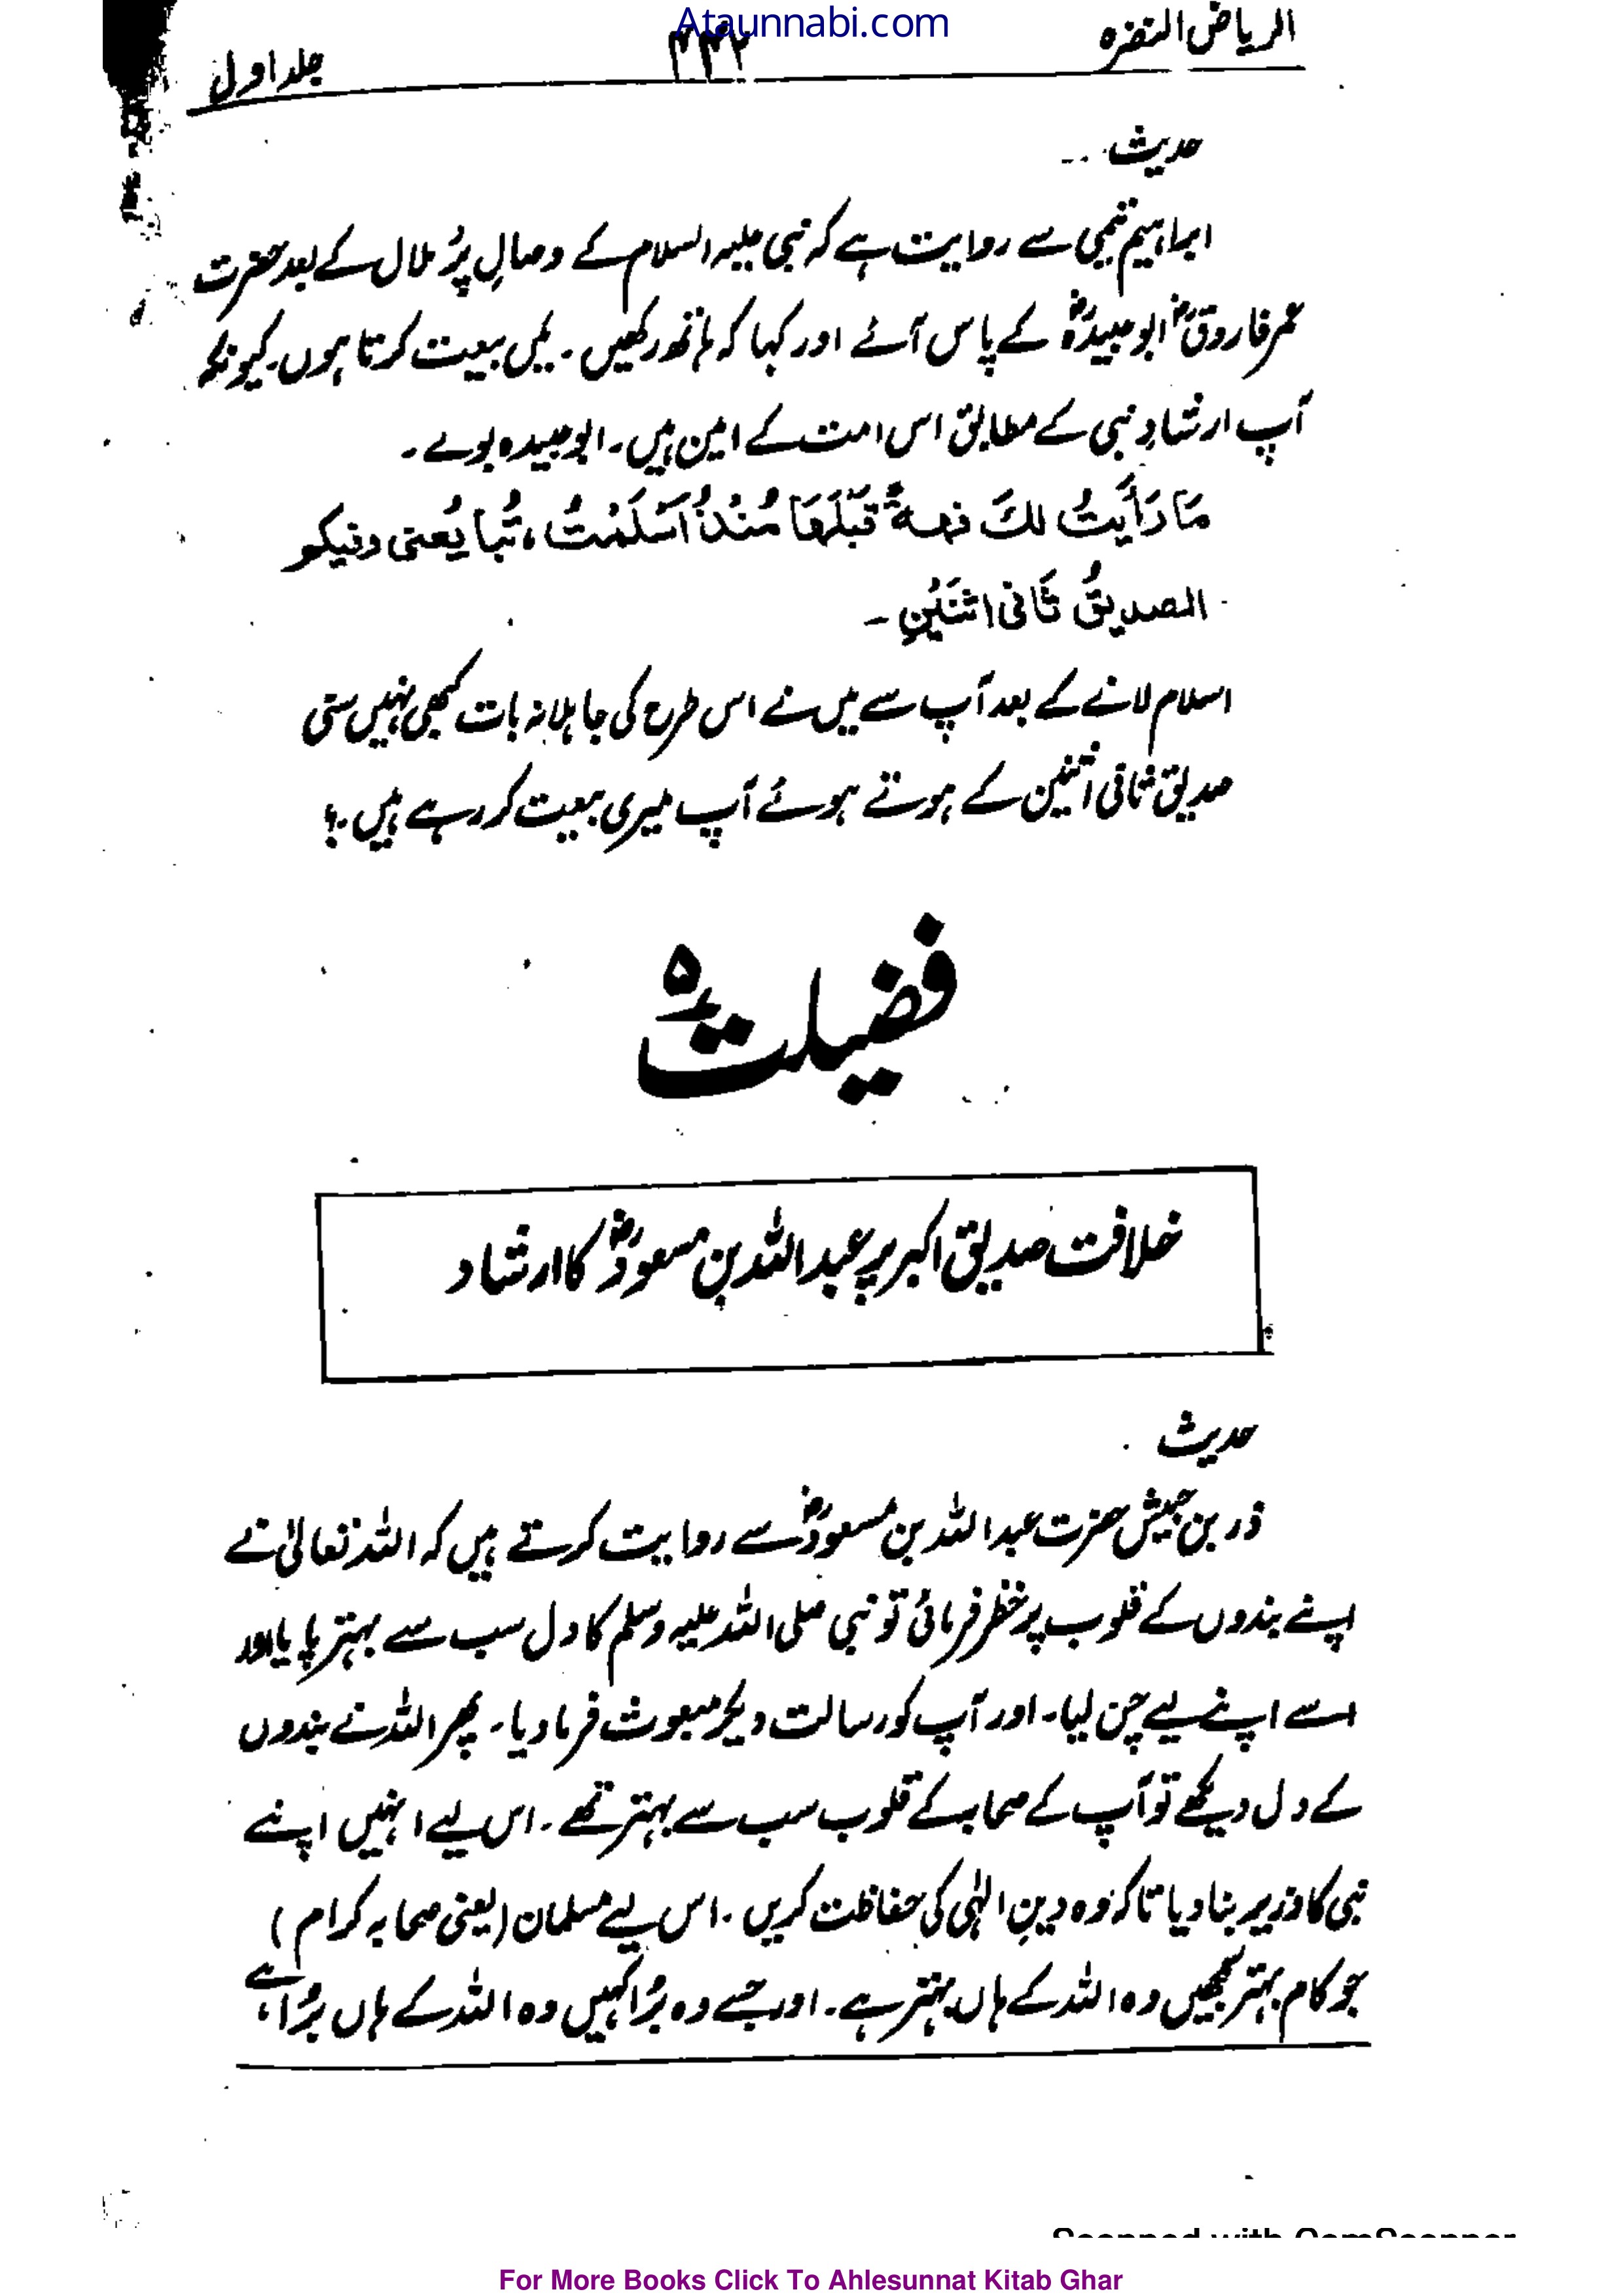 Ataunnabi.com
الریاض النضرہ ۴۴۲ جلد اول
حدیث۔
ابراہیم تیمی سے روایت ہے کہ نبی علیہ السلام کے وصالِ پُر ملال کے بعد حضرت
عمر فاروقؓ ابو عبیدہؓ کے پاس آئے اور کہا کہ ہاتھ رکھیں۔ میں بیعت کرتا ہوں۔ کیونکہ
آپ ارشادِ نبی کے مطابق اس امت کے امین ہیں۔ ابو عبیدہ بولے۔
مَا رَأَیتُ لكَ فهةً قَبْلَهَا مُنْذُ اَسْلَمْتُ، تُبا یُعنی وفیکو
الصدیقُ ثَانی اثنَیْنِ۔
اسلام لانے کے بعد آپ سے میں نے اس طرح کی جاہلانہ بات کبھی نہیں سنی
صدیق ثانی اثنین کے ہوتے ہوئے آپ میری بیعت کر رہے ہیں؟
فضیلت ۵
خلافت صدیق اکبر پر عبداللہ بن مسعودؓ کا ارشاد
حدیث
ذر بن حبیش حضرت عبداللہ بن مسعودؓ سے روایت کرتے ہیں کہ اللہ تعالیٰ نے
اپنے بندوں کے قلوب پر نظر فرمائی تو نبی صلی اللہ علیہ وسلم کا دل سب سے بہتر پایا اور
اسے اپنے لیے چن لیا۔ اور آپ کو رسالت دیکر مبعوث فرما دیا۔ پھر اللہ نے بندوں
کے دل دیکھے تو آپ کے صحابہ کے قلوب سب سے بہتر تھے۔ اس لیے انہیں اپنے
نبی کا وزیر بنا دیا تاکہ وہ دینِ الہٰی کی حفاظت کریں۔ اس لیے مسلمان (یعنی صحابہ کرام)
جو کام بہتر سمجھیں وہ اللہ کے ہاں بہتر ہے۔ اور جسے وہ بُرا کہیں وہ اللہ کے ہاں بُرا ہے،
Scanned with CamScanner
For More Books Click To Ahlesunnat Kitab Ghar